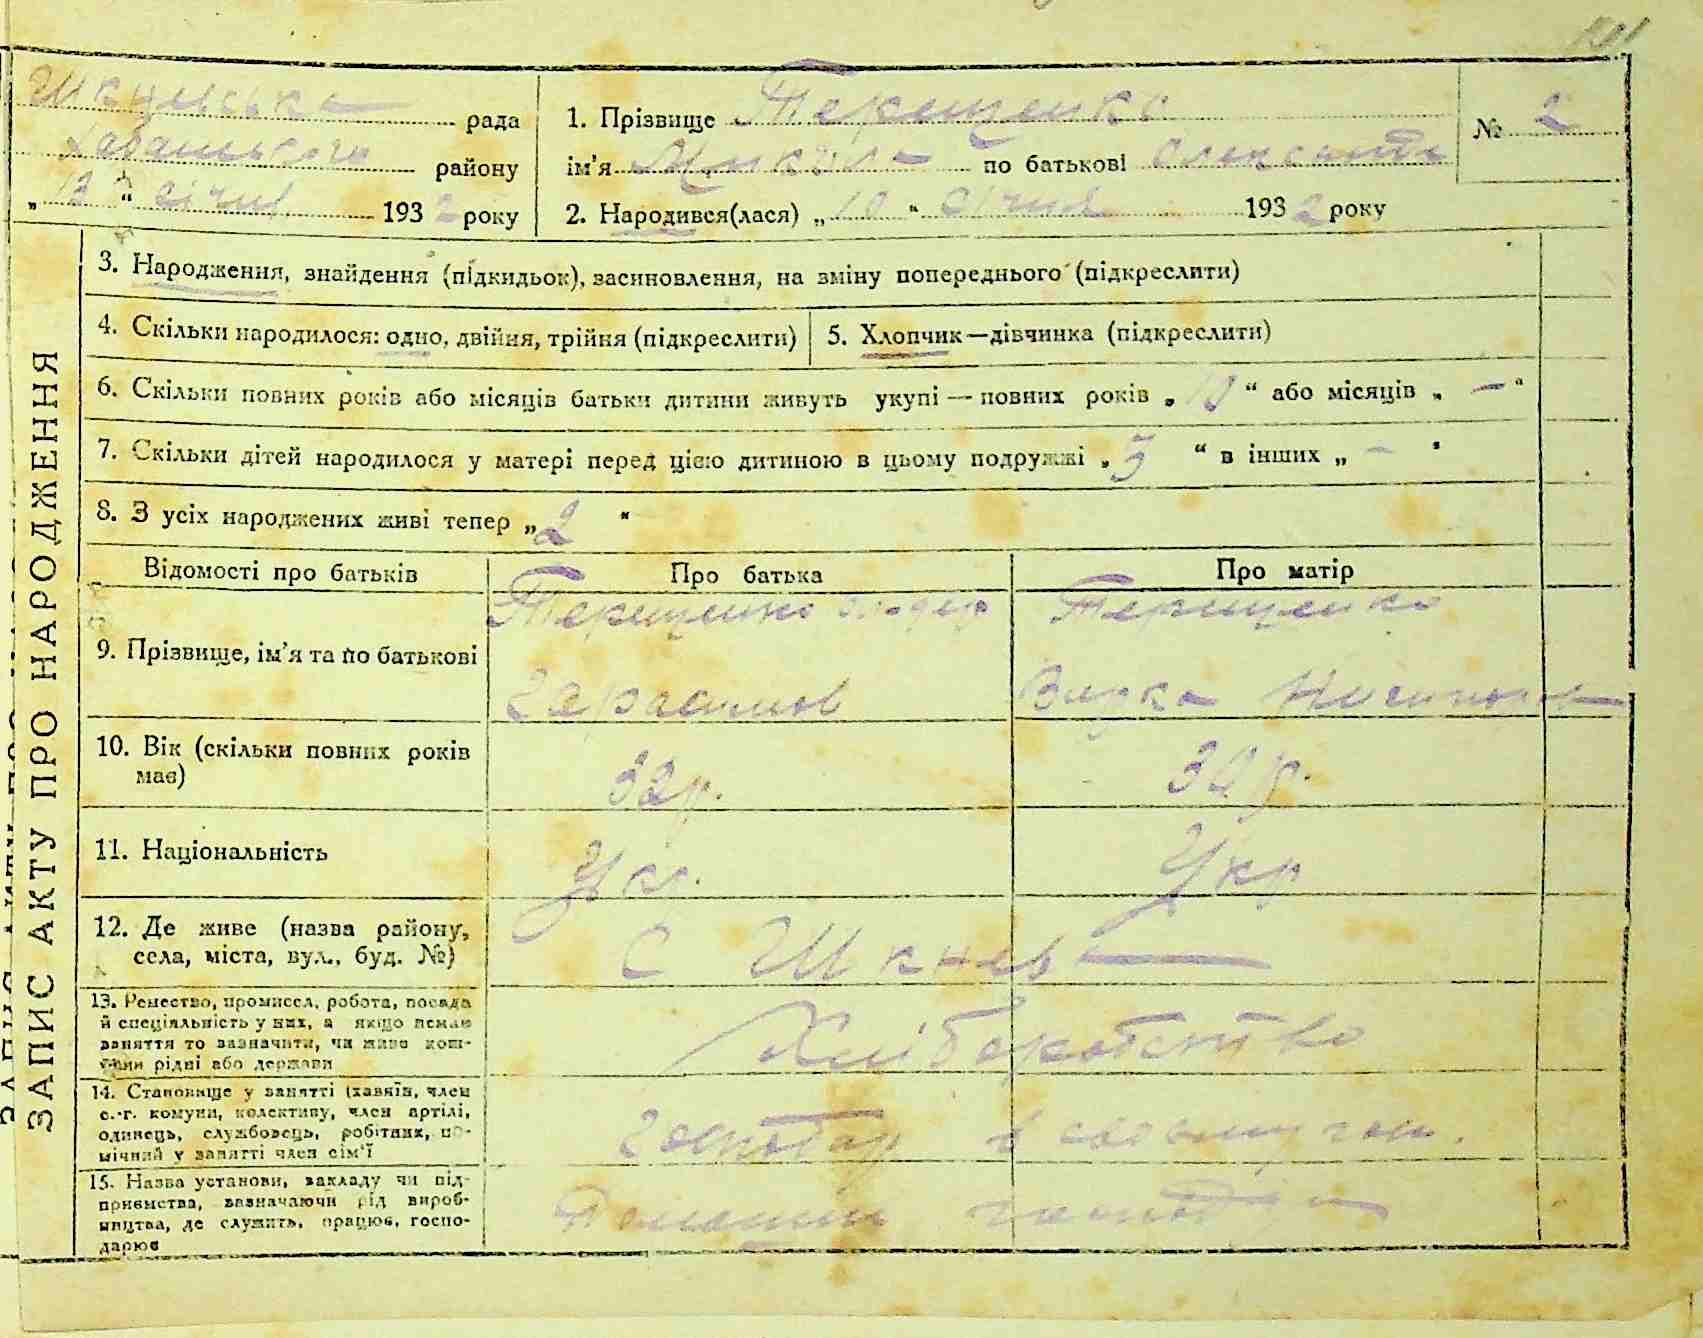 Шкневська рада
району
„ 13 “ січня 1932 року
1. Прізвище Терещенко
ім’я Микола по батькові Олександр
№ 2
2. Народився(лася) „ 10 “ Січня 1932 року
ЗАПИС АКТУ ПРО НАРОДЖЕННЯ
3. Народження, знайдення (підкидьок), засиновлення, на зміну попереднього (підкреслити)
4. Скільки народилося: одно, двійня, трійня (підкреслити)
5. Хлопчик—дівчинка (підкреслити)
6. Скільки повних років або місяців батьки дитини живуть укупі — повних років „ 10 “ або місяців „ — “
7. Скільки дітей народилося у матері перед цією дитиною в цьому подружжі „ 3 “ в інших „ — “
8. З усіх народжених живі тепер „ 2 “
Відомості про батьків
Про батька
Про матір
9. Прізвище, ім’я та по батькові
Терещенко
Герасимов
Терещенко
10. Вік (скільки повних років
має)
32 р.
32 р.
11. Національність
Укр.
Укр
12. Де живе (назва району,
села, міста, вул., буд. №)
С Шкнева
13. Ремество, промисел, робота, посада
й спеціяльність у них, а якщо немає
заняття то зазначити, чи живе кош-
тами рідні або держави
Хліборобство
14. Становище у занятті (хавяїн, член
с.-г. комуни, колективу, член артілі,
одинець, службовець, робітник, по-
мічний у занятті член сім’ї
Господар в своєму гос.
15. Назва установи, закладу чи під-
приємства, зазначаючи рід вироб-
ництва, де служить, працює, госпо-
дарює